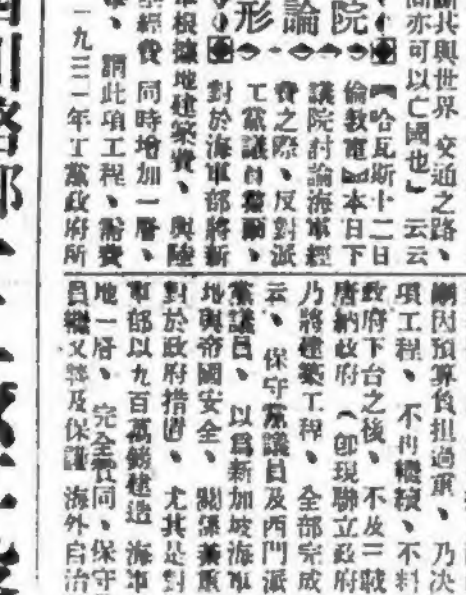 共與世界 交通之路、
間亦可以亡國也」云云
院
論
形
【哈瓦斯十二日
倫敦電】本日下
議院討論海軍經
費之際、反對派
工黨議員
對於海軍部將新
軍根據地建築費、與陸
經費 同時增加一層、
、謂此項工程、需費
一九三一年工黨政府所
因預算負担過重、乃決
項工程、不再繼續、不料
政府下台之後、不及二載
唐納政府（卽現聯立政府
乃將建築工程、全部完成
云、保守黨議員及西門派
黨議員、以爲新加坡海軍
地與帝國安全、關係重
對於政府措置、尤其是對
軍部以九百萬鎊建造 海軍
地一層、完全贊同、保守
員繼又及保護 海外自治